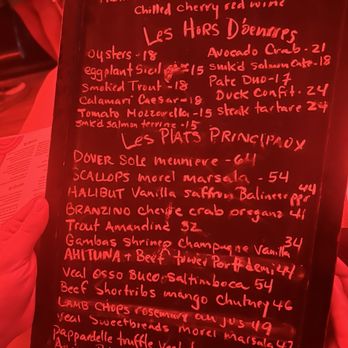 chilled cherry red wine
Les Hors D'oeuvres
oysters - 18
eggplant Sicil 15
Smoked Trout - 18
Calamari Caesar - 18
Tomato Mozzarella - 15
smk'd salmon terrine - 15
Avocado Crab - 21
smk'd salmon Cake - 18
Pate Duo - 17
Duck Confit - 24
steak tartare 24
Les Plats Principaux
DOVER Sole meuniere - 64
SCALLOPS morel marsala - 54
HALIBUT Vanilla saffron Balinese pepper 44
BRANZINO crab oregano 41
Trout Amandine 32
Gambas shrimp champagne Vanilla 34
AHITUNA + Beef tower Port demi 44
Veal Osso Buco saltimboca 54
Beef Shortribs mango chutney 46
LAMB CHOPS rosemary au jus 49
Veal Sweetbreads morel marsala 47
Pappardelle truffle Veal